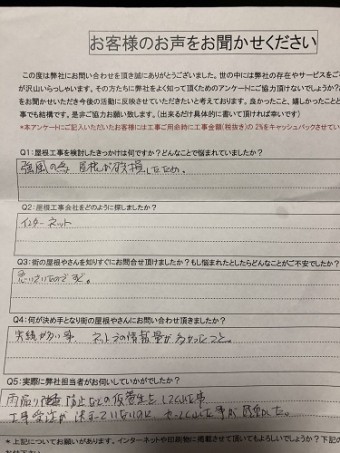 お客様のお声をお聞かせください
この度は弊社にお問い合わせを頂き誠にありがとうございました。世の中には弊社の存在やサービスをご
が沢山いらっしゃいます。その方たちに弊社をよく知って頂くためのアンケートにご協力頂けないでしょうか?
をお聞かせいただき今後の活動に反映させていただきたいと考えております。良かったこと、嬉しかったこと
事でも結構です。是非ご協力お願い致します。(出来るだけ具体的に書いて頂ければ幸いです)
*本アンケートにご記入いただいたお客様には工事ご用命時に工事金額(税抜き)の2%をキャッシュバックさせてい
Q1:屋根工事を検討したきっかけは何ですか?どんなことで悩まれていましたか?
強風の為 屋根が破損したため。
Q2:屋根工事会社をどのように探しましたか?
インターネット
Q3:街の屋根やさんを知りすぐにお問合せ頂けましたか?もし悩まれたとしたらどんなことがご不安でしたか?
Q4:何が決め手となり街の屋根やさんにお問い合わせ頂きましたか?
実績が多い事 ネットでの情報量が多かったこと。
Q5:実際に弊社担当者がお伺いしていかがでしたか?
雨漏り 防止などの仮養生をしてくれた事
工事受注が 決まっていないのに
*上記についてお願いがあります。インターネットや印刷物に掲載させて頂いてもよろしいでしょうか?下記の